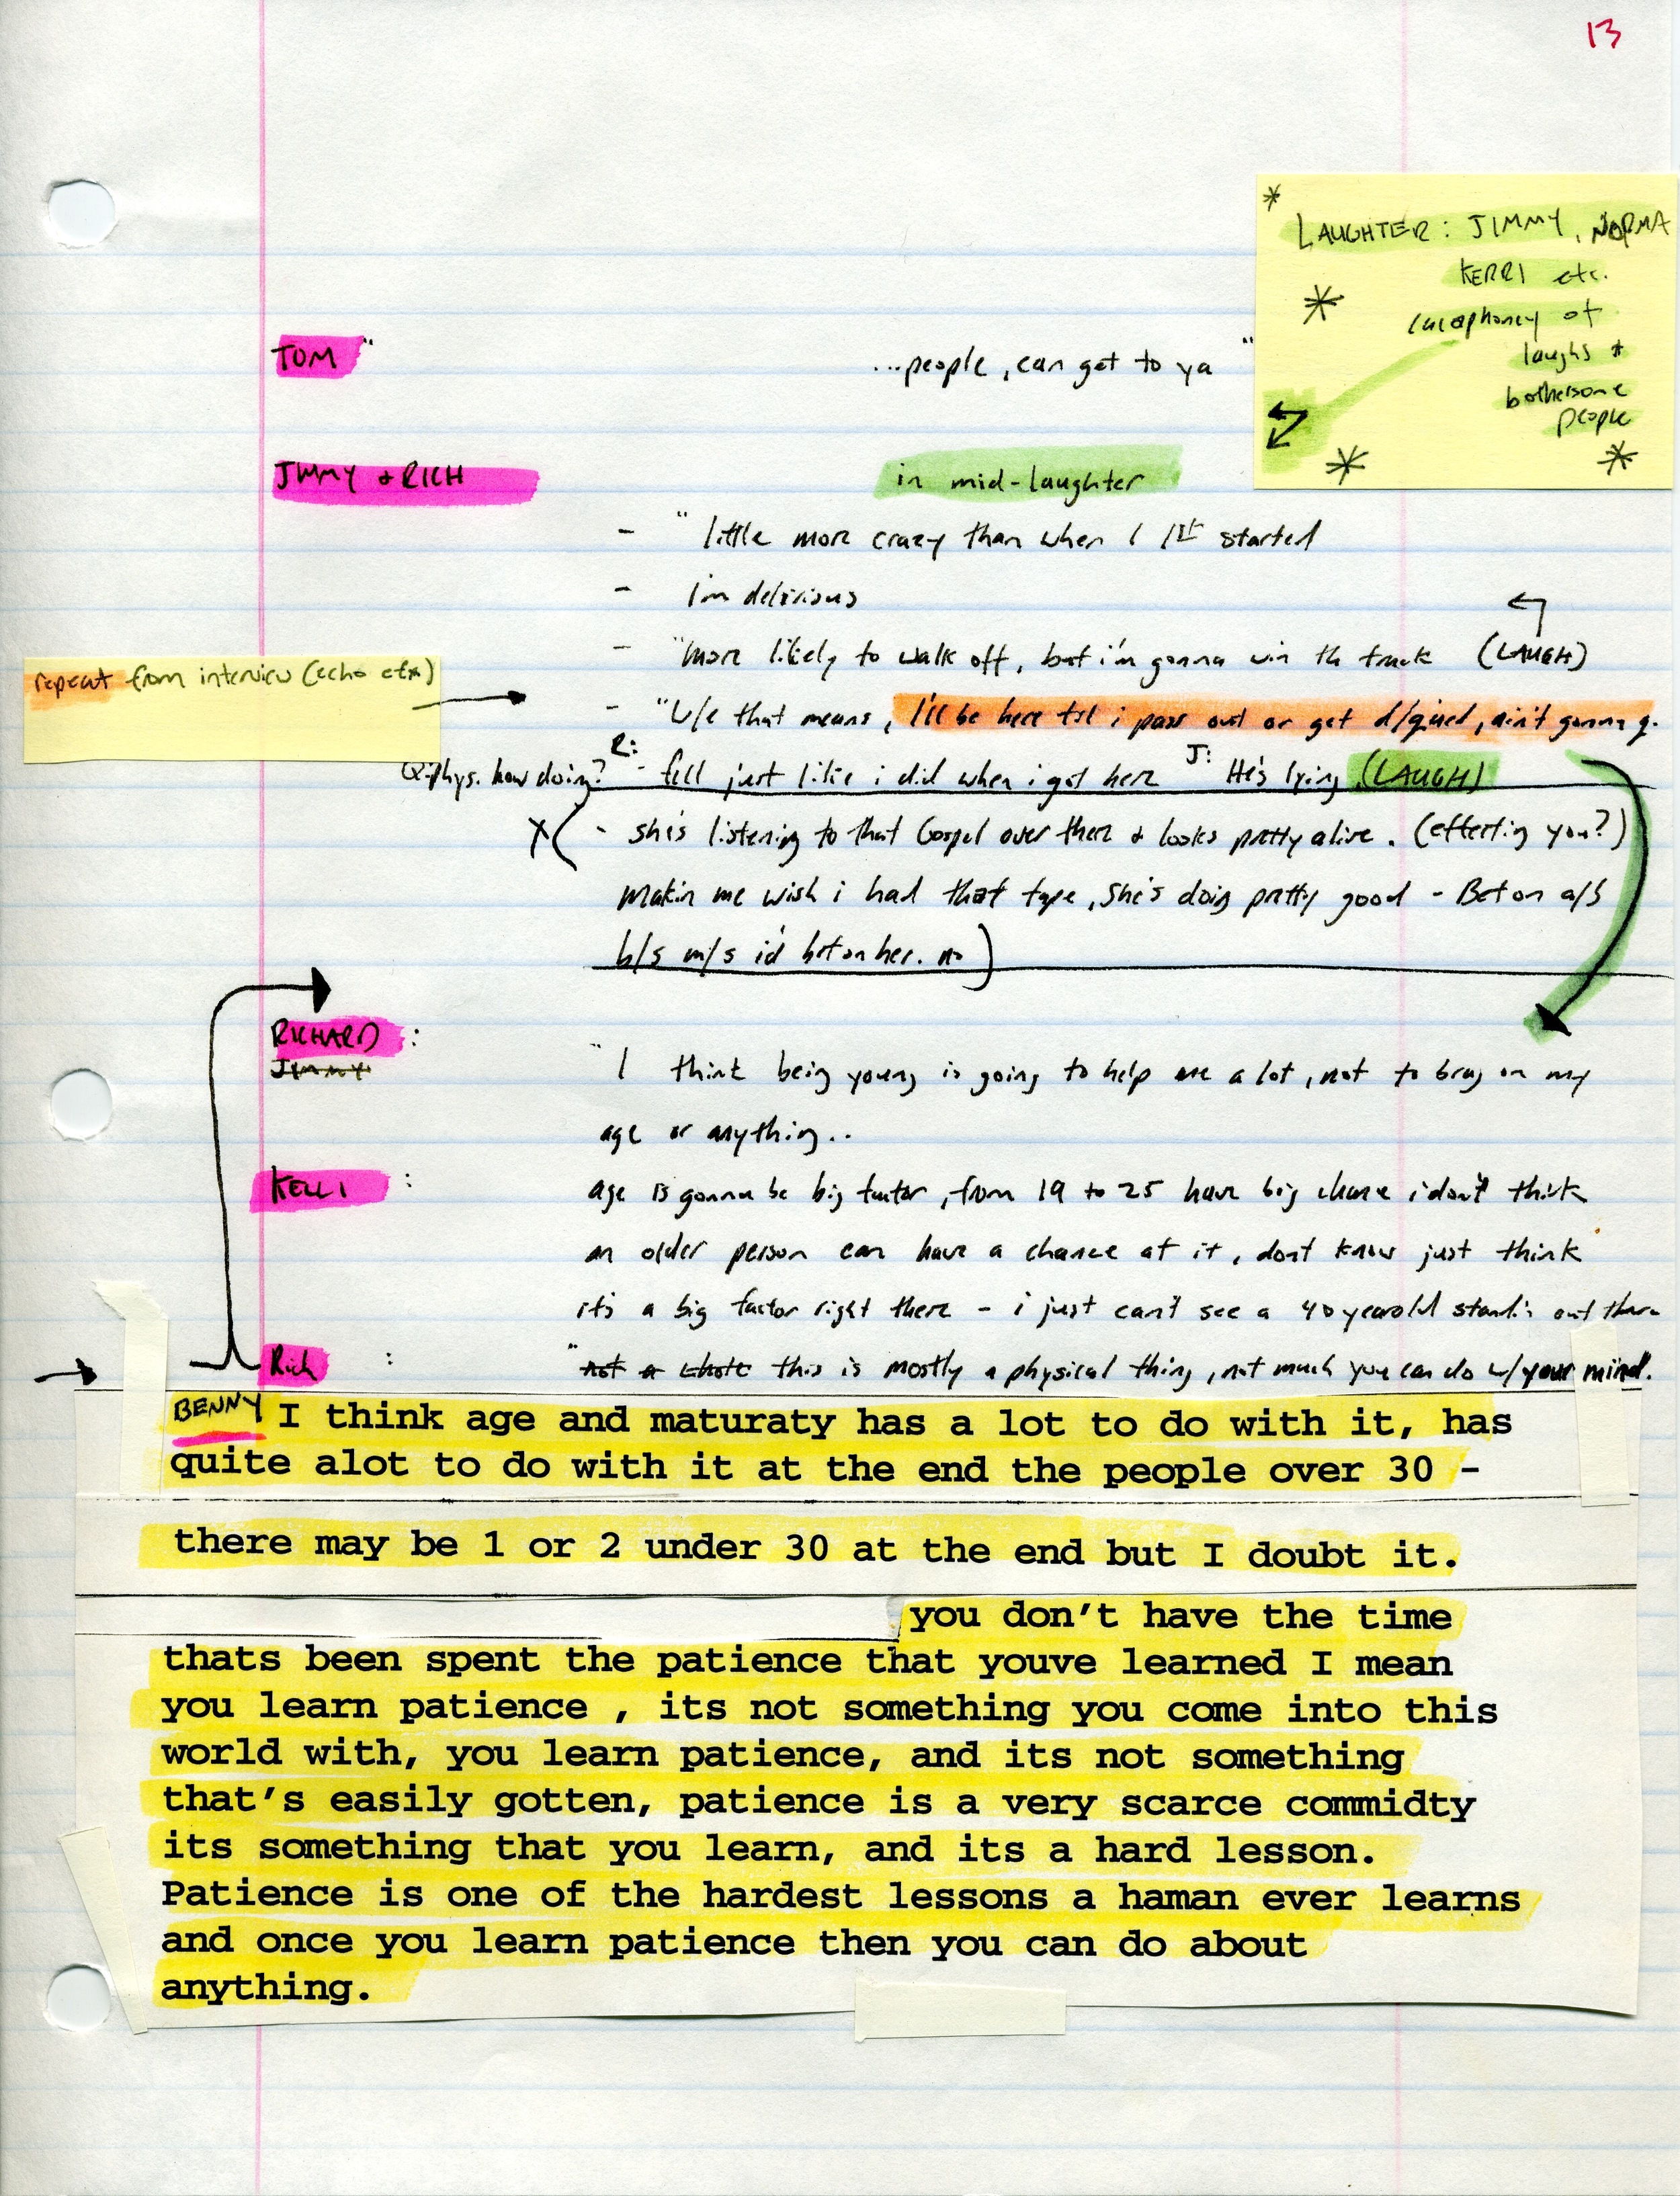 13
* LAUGHTER: JIMMY, NORMA
KERRI etc.
cacaphoney of
laughs +
bothersome
people
TOM " ...people, can get to ya "
JIMMY + RICH in mid-laughter
- " little more crazy than when I 1st started
- I'm delirious
- "more likely to walk off, but i'm gonna win th truck (LAUGH)
repeat from interview (echo etc)
- "W/e that means, I'll be here til i pass out or get d/q'ued, ain't gonna q.
Q: phys. how doing? R: - fell just like i did when i got here J: He's lying (LAUGH)
X ( - she's listening to that Gospel over there + looks pretty alive. (effecting you?)
makin me wish i had that tape, she's doig pretty good - Bet on a/s
b/s m/s i'd bet on her. no )
RICHARD :
Jimmy
" I think being young is going to help me a lot, not to brag on my
age or anything..
KELLI : age is gonna be big factor, from 19 to 25 have big chance i don't think
an older person can have a chance at it, dont know just think
it's a big factor right there - i just can't see a 40 yearold standin out there
Rich : "not a whole this is mostly a physical thing, not much you can do w/ your mind.
BENNY I think age and maturaty has a lot to do with it, has
quite alot to do with it at the end the people over 30 -
there may be 1 or 2 under 30 at the end but I doubt it.
you don't have the time
thats been spent the patience that youve learned I mean
you learn patience , its not something you come into this
world with, you learn patience, and its not something
that's easily gotten, patience is a very scarce commidty
its something that you learn, and its a hard lesson.
Patience is one of the hardest lessons a haman ever learns
and once you learn patience then you can do about
anything.